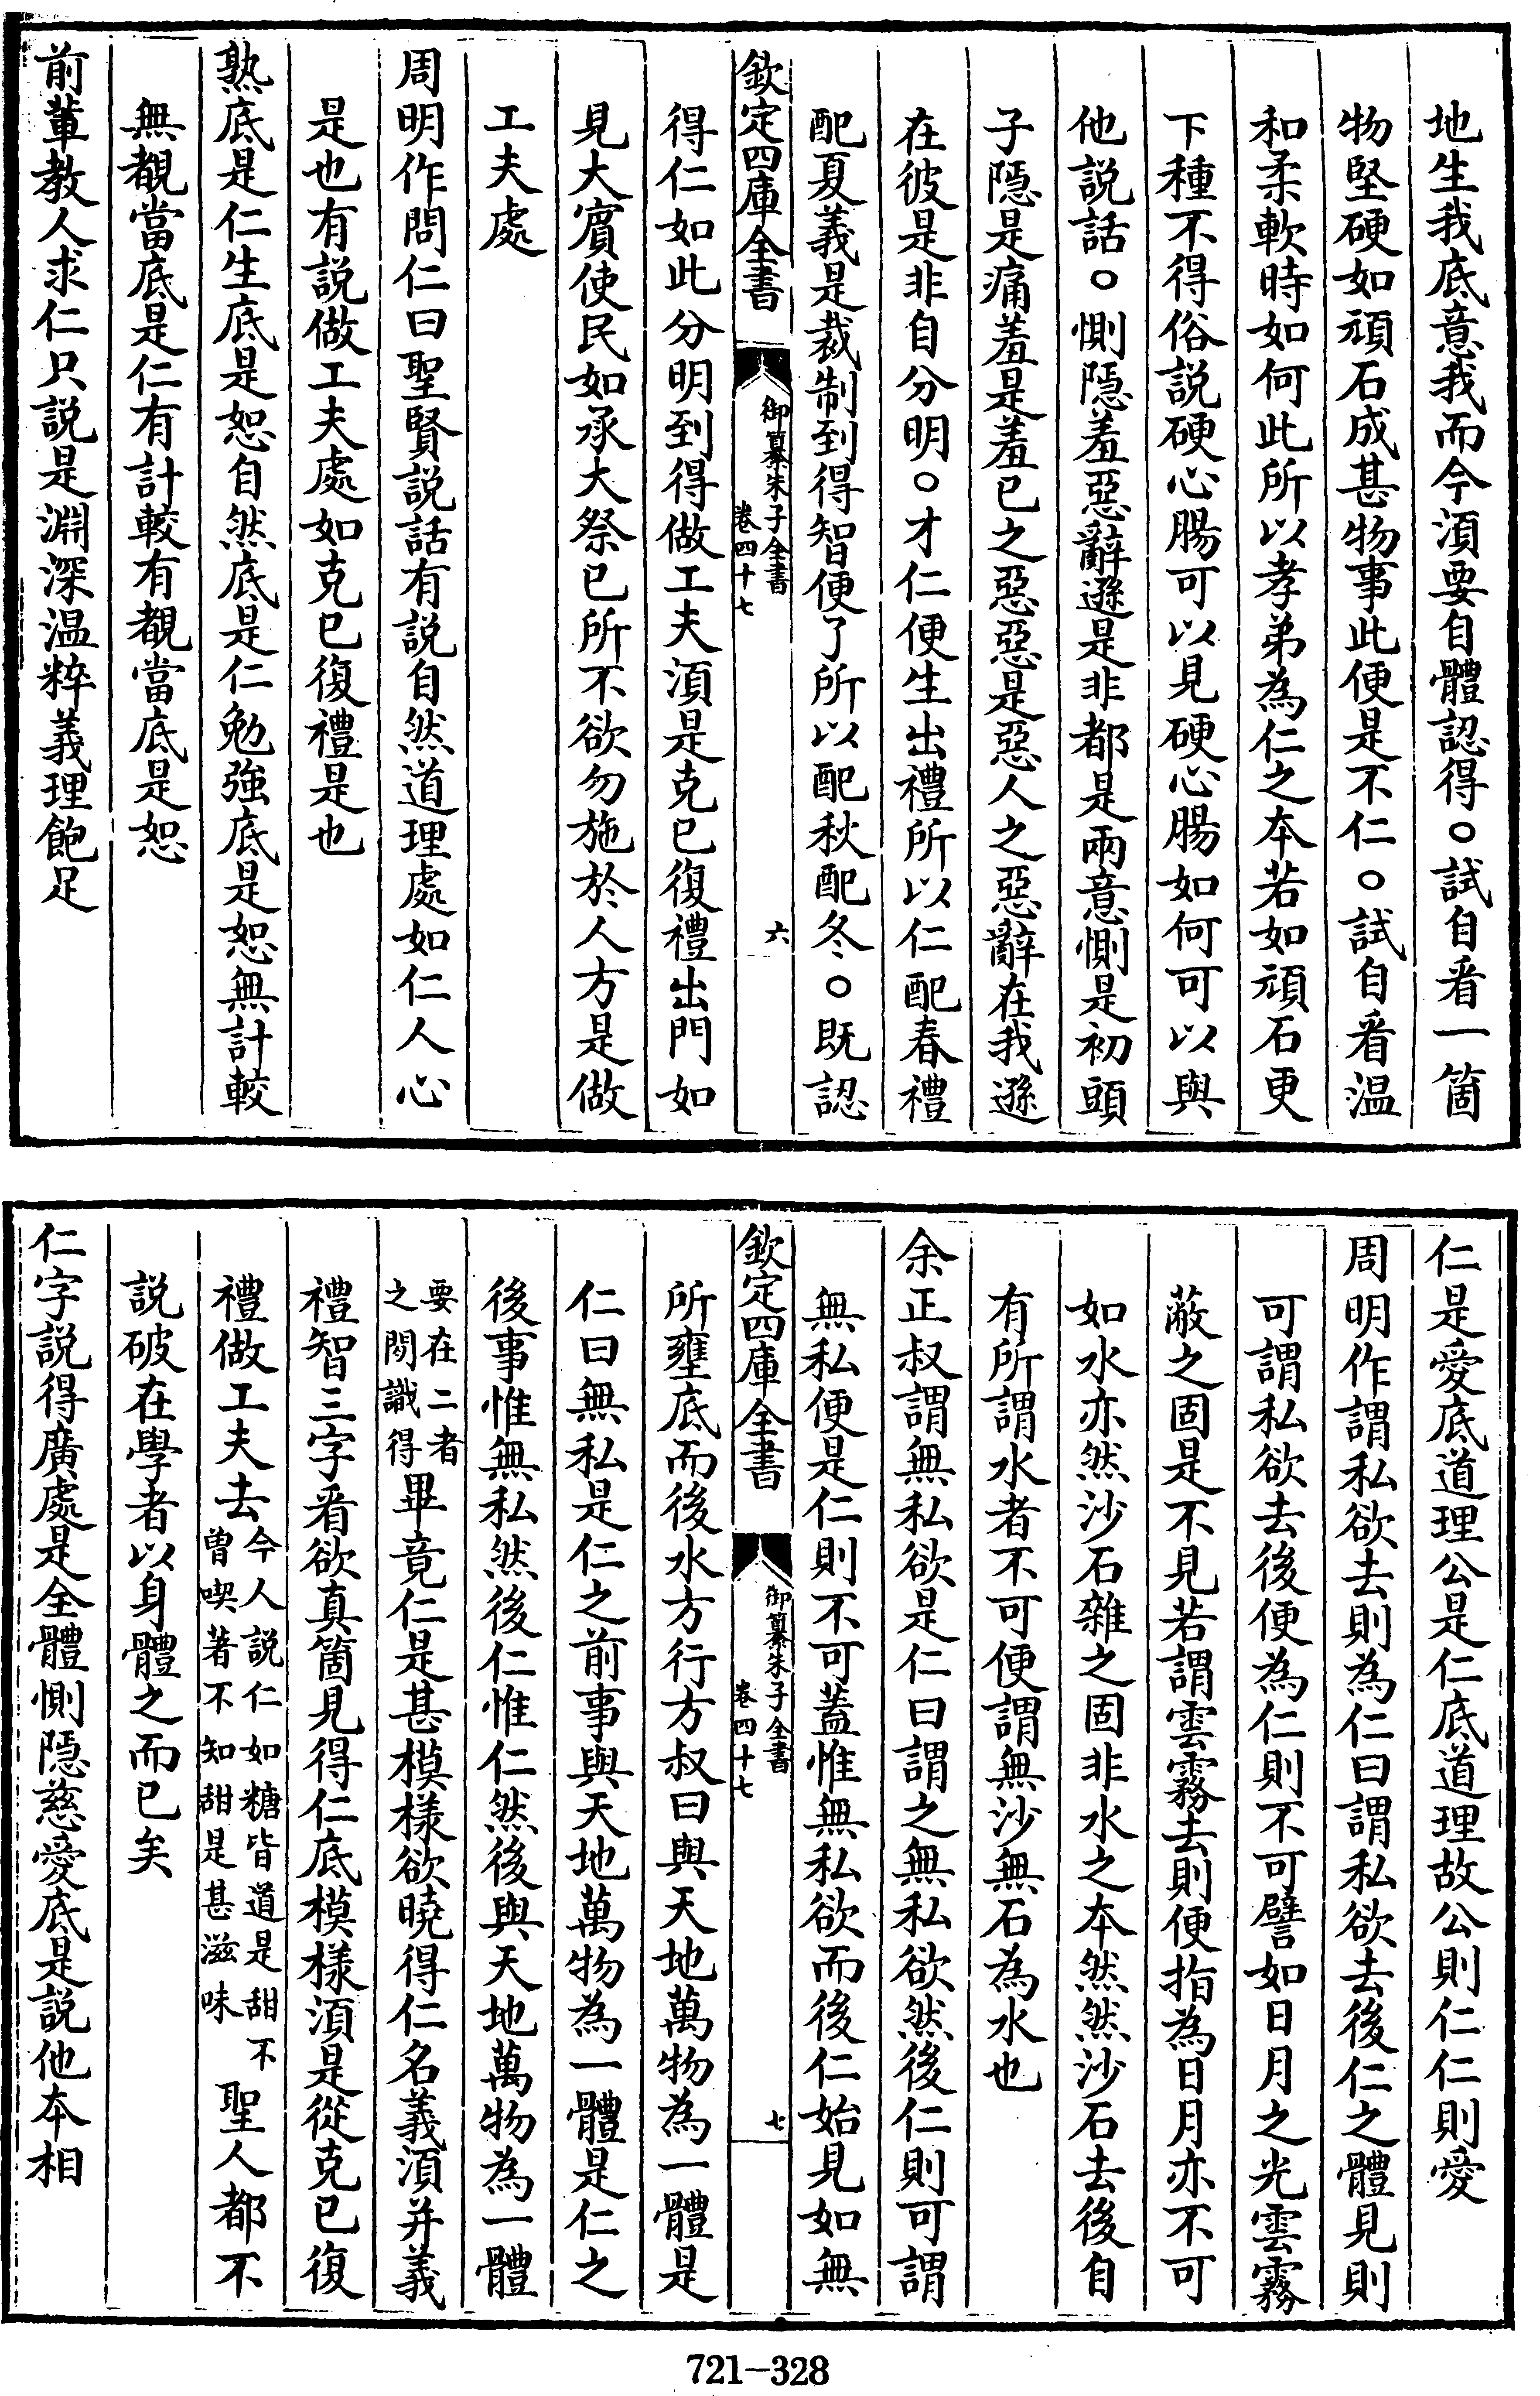 地生我底意我而今須要自體認得○試自看一箇
物堅硬如頑石成甚物事此便是不仁○試自看溫
和柔軟時如何此所以孝弟為仁之本若如頑石更
下種不得俗說硬心腸可以見硬心腸如何可以與
他說話○惻隱羞惡辭遜是非都是兩意惻是初頭
子隱是痛羞是羞已之惡惡是惡人之惡辭在我遜
在彼是非自分明○才仁便生出禮所以仁配春禮
配夏義是裁制到得智便了所以配秋配冬○既認
欽定四庫全書
御纂朱子全書
卷四十七
六
得仁如此分明到得做工夫須是克已復禮出門如
見大賓使民如承大祭已所不欲勿施於人方是做
工夫處
周明作問仁曰聖賢說話有說自然道理處如仁人心
是也有說做工夫處如克已復禮是也
熟底是仁生底是恕自然底是仁勉強底是恕無計較
無覩當底是仁有計較有覩當底是恕
前輩教人求仁只說是淵深溫粹義理飽足
仁是愛底道理公是仁底道理故公則仁仁則愛
周明作謂私欲去則為仁曰謂私欲去後仁之體見則
可謂私欲去後便為仁則不可譬如日月之光雲霧
蔽之固是不見若謂雲霧去則便指為日月亦不可
如水亦然沙石雜之固非水之本然然沙石去後自
有所謂水者不可便謂無沙無石為水也
余正叔謂無私欲是仁曰謂之無私欲然後仁則可謂
無私便是仁則不可蓋惟無私欲而後仁始見如無
欽定四庫全書
御纂朱子全書
卷四十七
七
所壅底而後水方行方叔曰與天地萬物為一體是
仁曰無私是仁之前事與天地萬物為一體是仁之
後事惟無私然後仁惟仁然後與天地萬物為一體
要在二者之間識得畢竟仁是甚模樣欲曉得仁名義須并義
禮智三字看欲真箇見得仁底模樣須是從克已復
禮做工夫去今人說仁如糖皆道是甜不曾喫著不知甜是甚滋味聖人都不
說破在學者以身體之而已矣
仁字說得廣處是全體惻隱慈愛底是說他本相
721-328